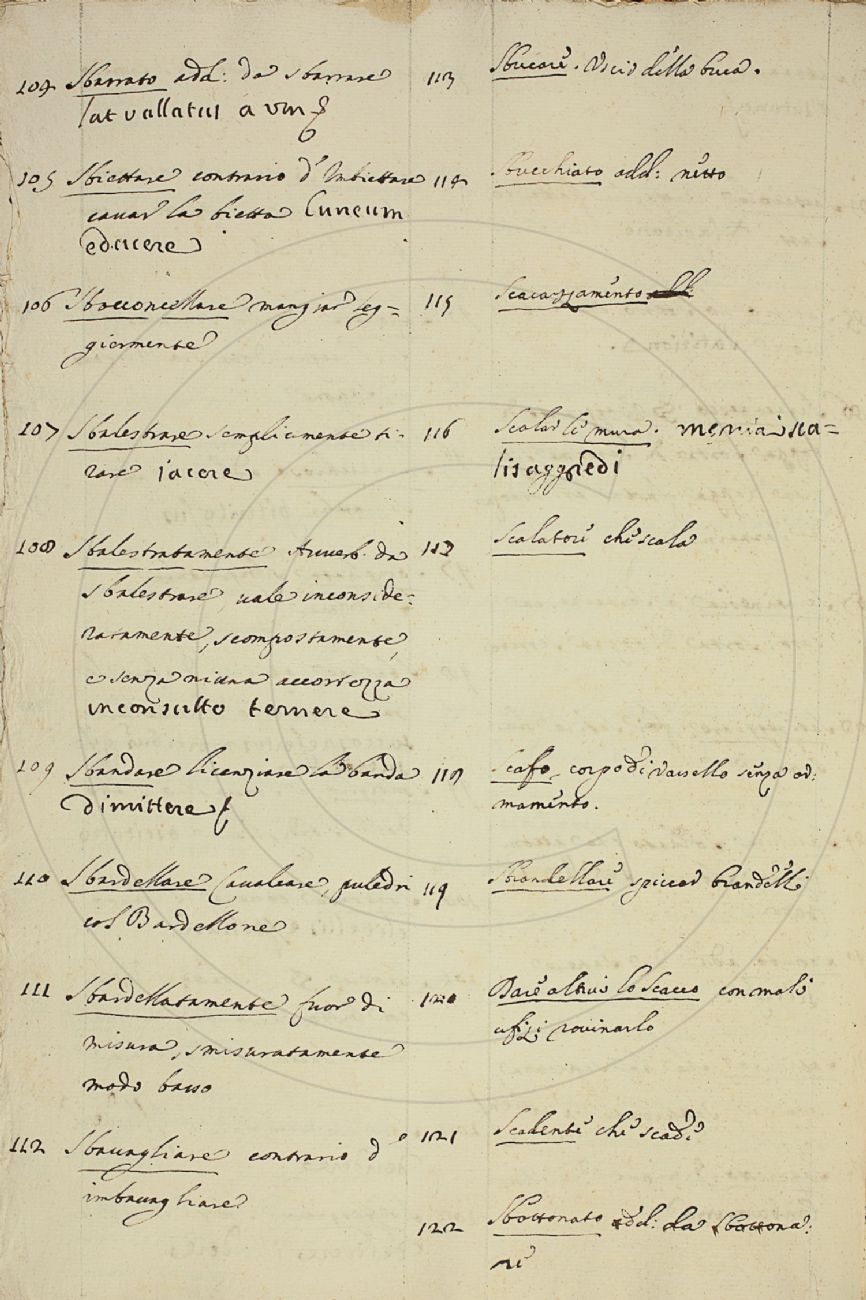 104 Sbarrato add: da sbarrare
lat vallatus a um
105 Sbiettare contrario d'Imbiettare
cavar la bietta Cuneum
educere
106 Sbocconcellare mangiar leg=
giermente
107 Sbalestrare semplicemente ti-
rare jacere
108 Sbalestratamente Avverb. da
sbalestrare, vale inconside=
ratamente, scompostamente,
e senza niuna accortezza
inconsulto temere
109 Sbandare licenziare la banda
dimittere
110 Sbardellare Cavalcare, puledri
col Bardellone
111 Sbardellatamente fuor di
misura, smisuratamente
modo basso
112 Sbavagliare contrario d'
imbavagliare
113 Sbucare. Uscir della buca.
114 Sbucchiato add: netto
115 Scacazzamento
116 Scalar le mura. menia sca=
lis aggredi
117 Scalatore che scala
118 Scafo, corpo di vascello senza ar:
mamento.
119 Sbrandellare spiccar brandelli
120 Dare altrui lo Scacco con mali
ufizi rovinarlo
121 Scadente che scade
122 Sbottonato add: da Sbottona:
re